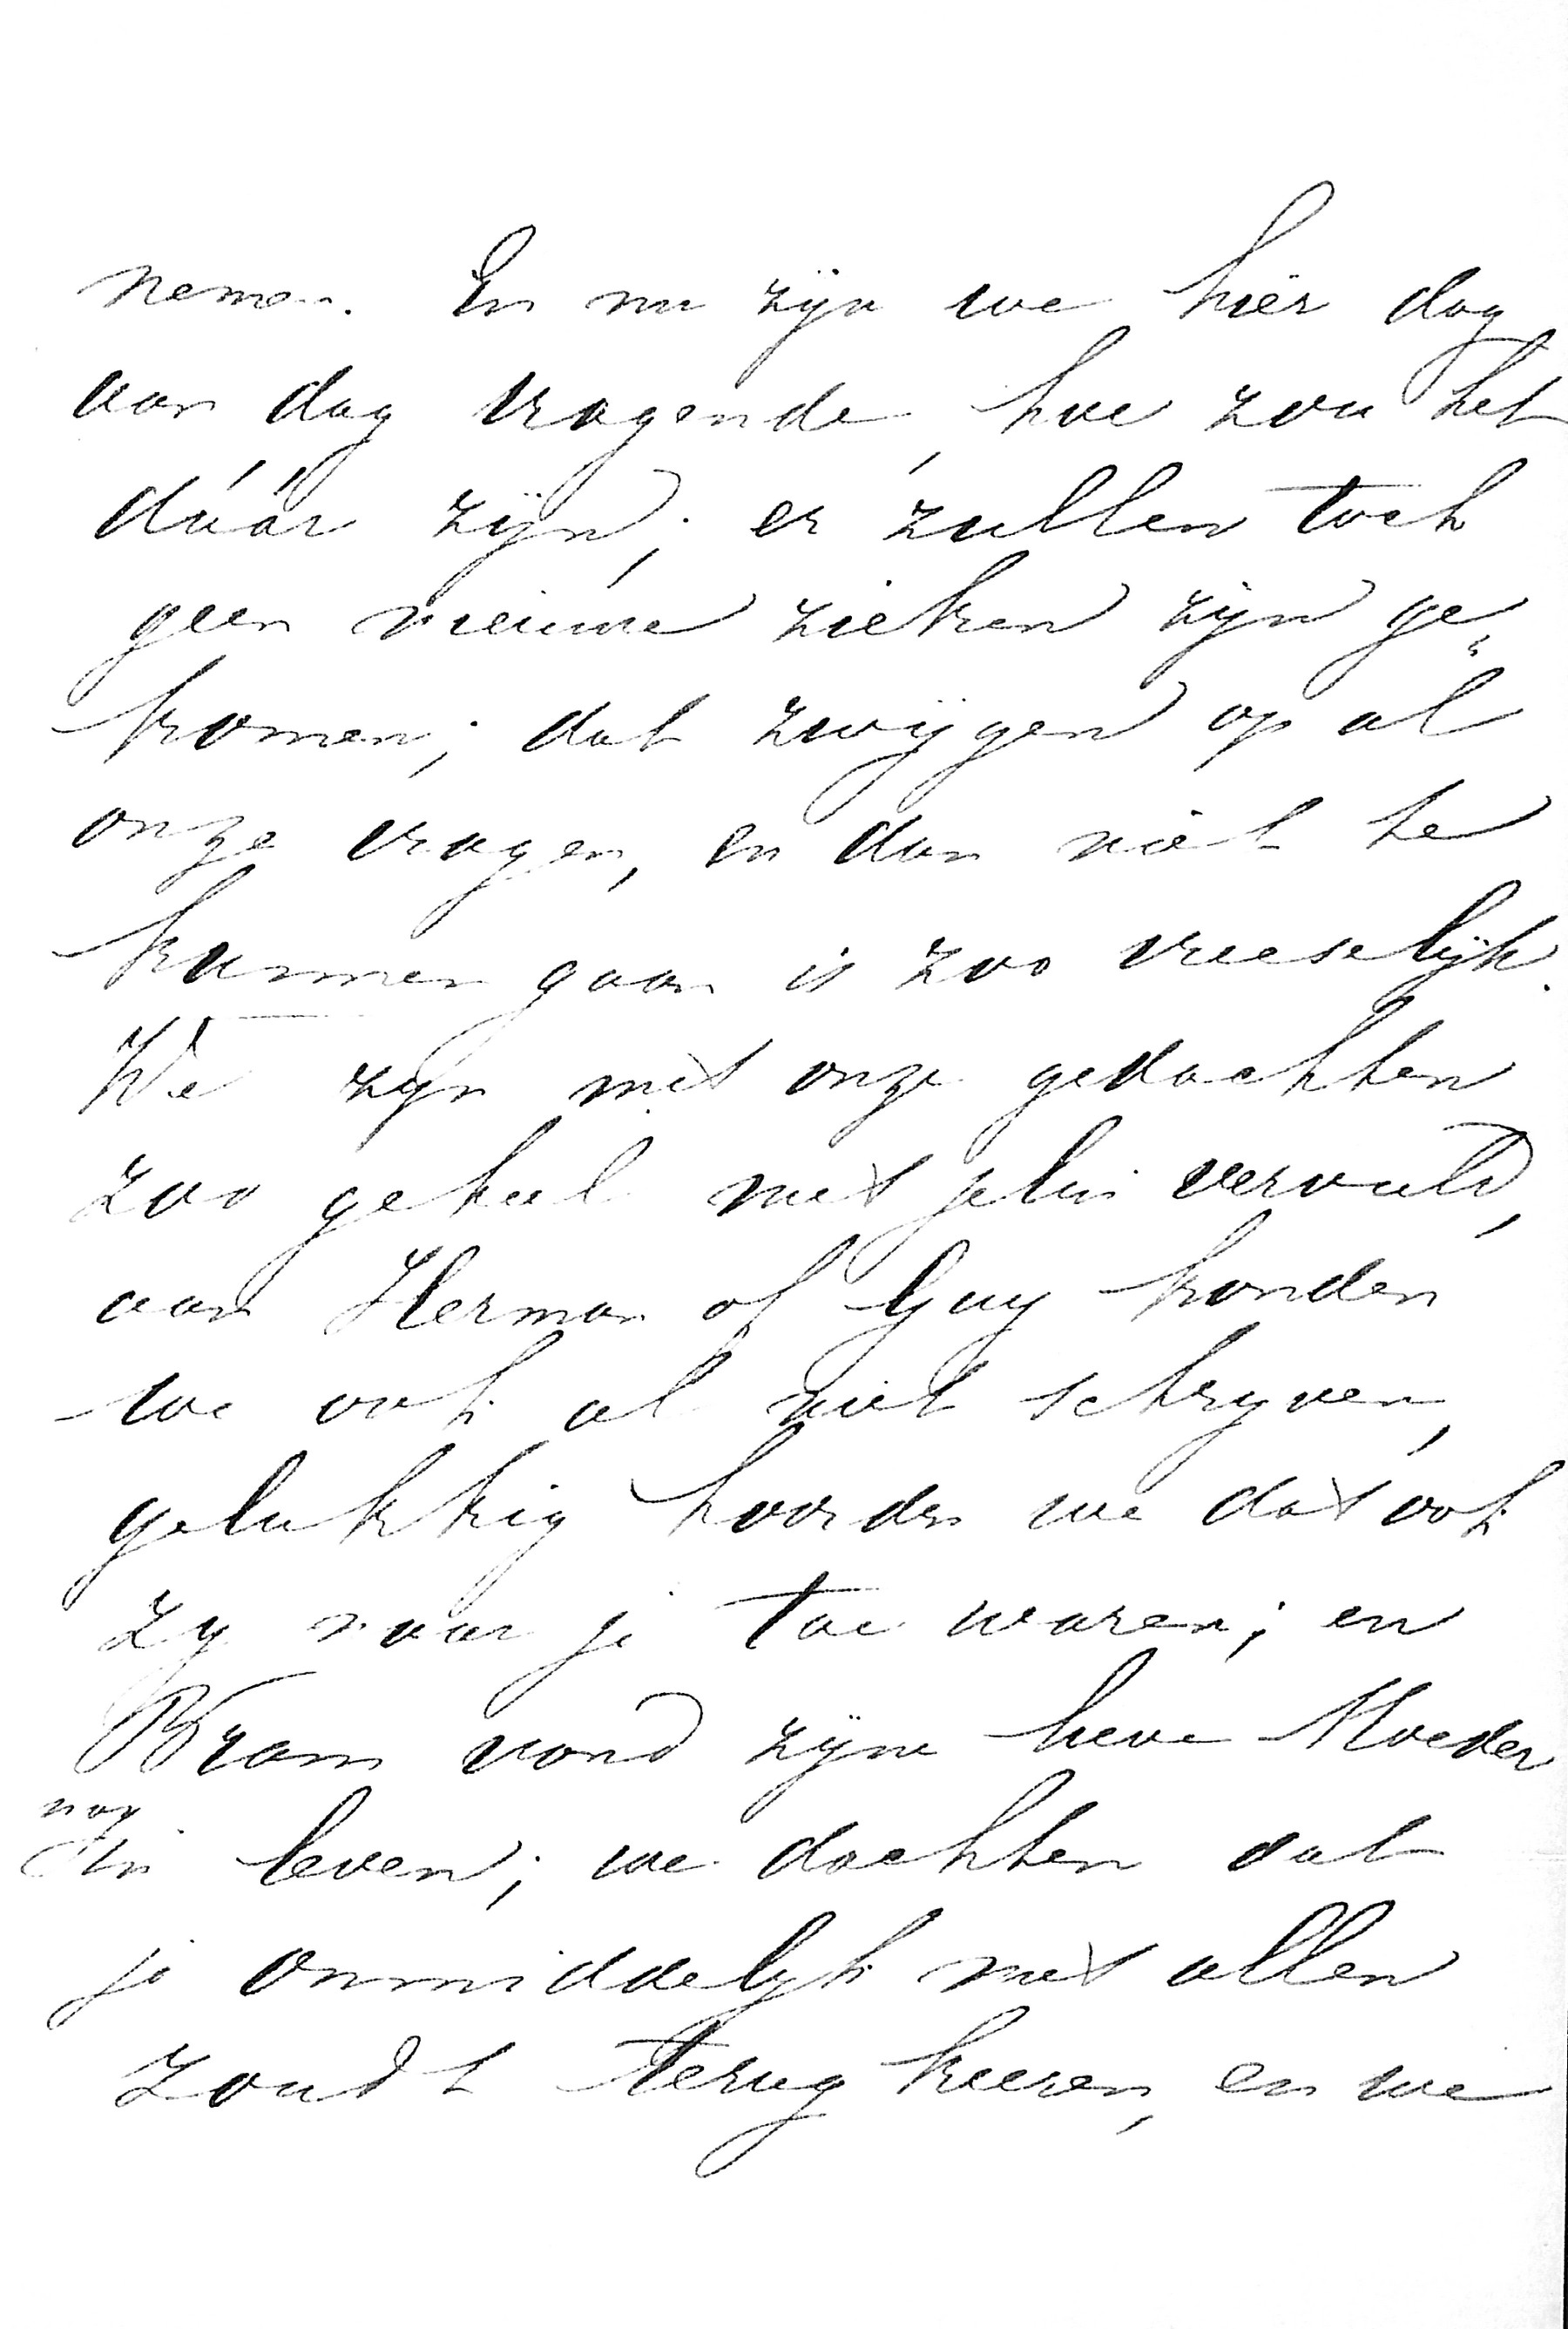 nemen. En nu zijn we hier dag
aan dag vragende, hoe zou het
dáár zijn; er zullen toch
geen nieuwe zieken zijn ge„
komen; dat zwijgen op al
onze vragen, en dan niet te
kunnen gaan is zoo vreeselijk.
We zijn met onze gedachten
zoo geheel met jelui vervuld,
aan Herman of Guy konden
we ook al niet schrijven,
gelukkig hoorden we dat ook
zij naar je toe waren; en
Bram vond zijne lieve Moeder
nog
in leven; we dachten dat
je onmiddelijk met allen
zoudt terug keeren, en we